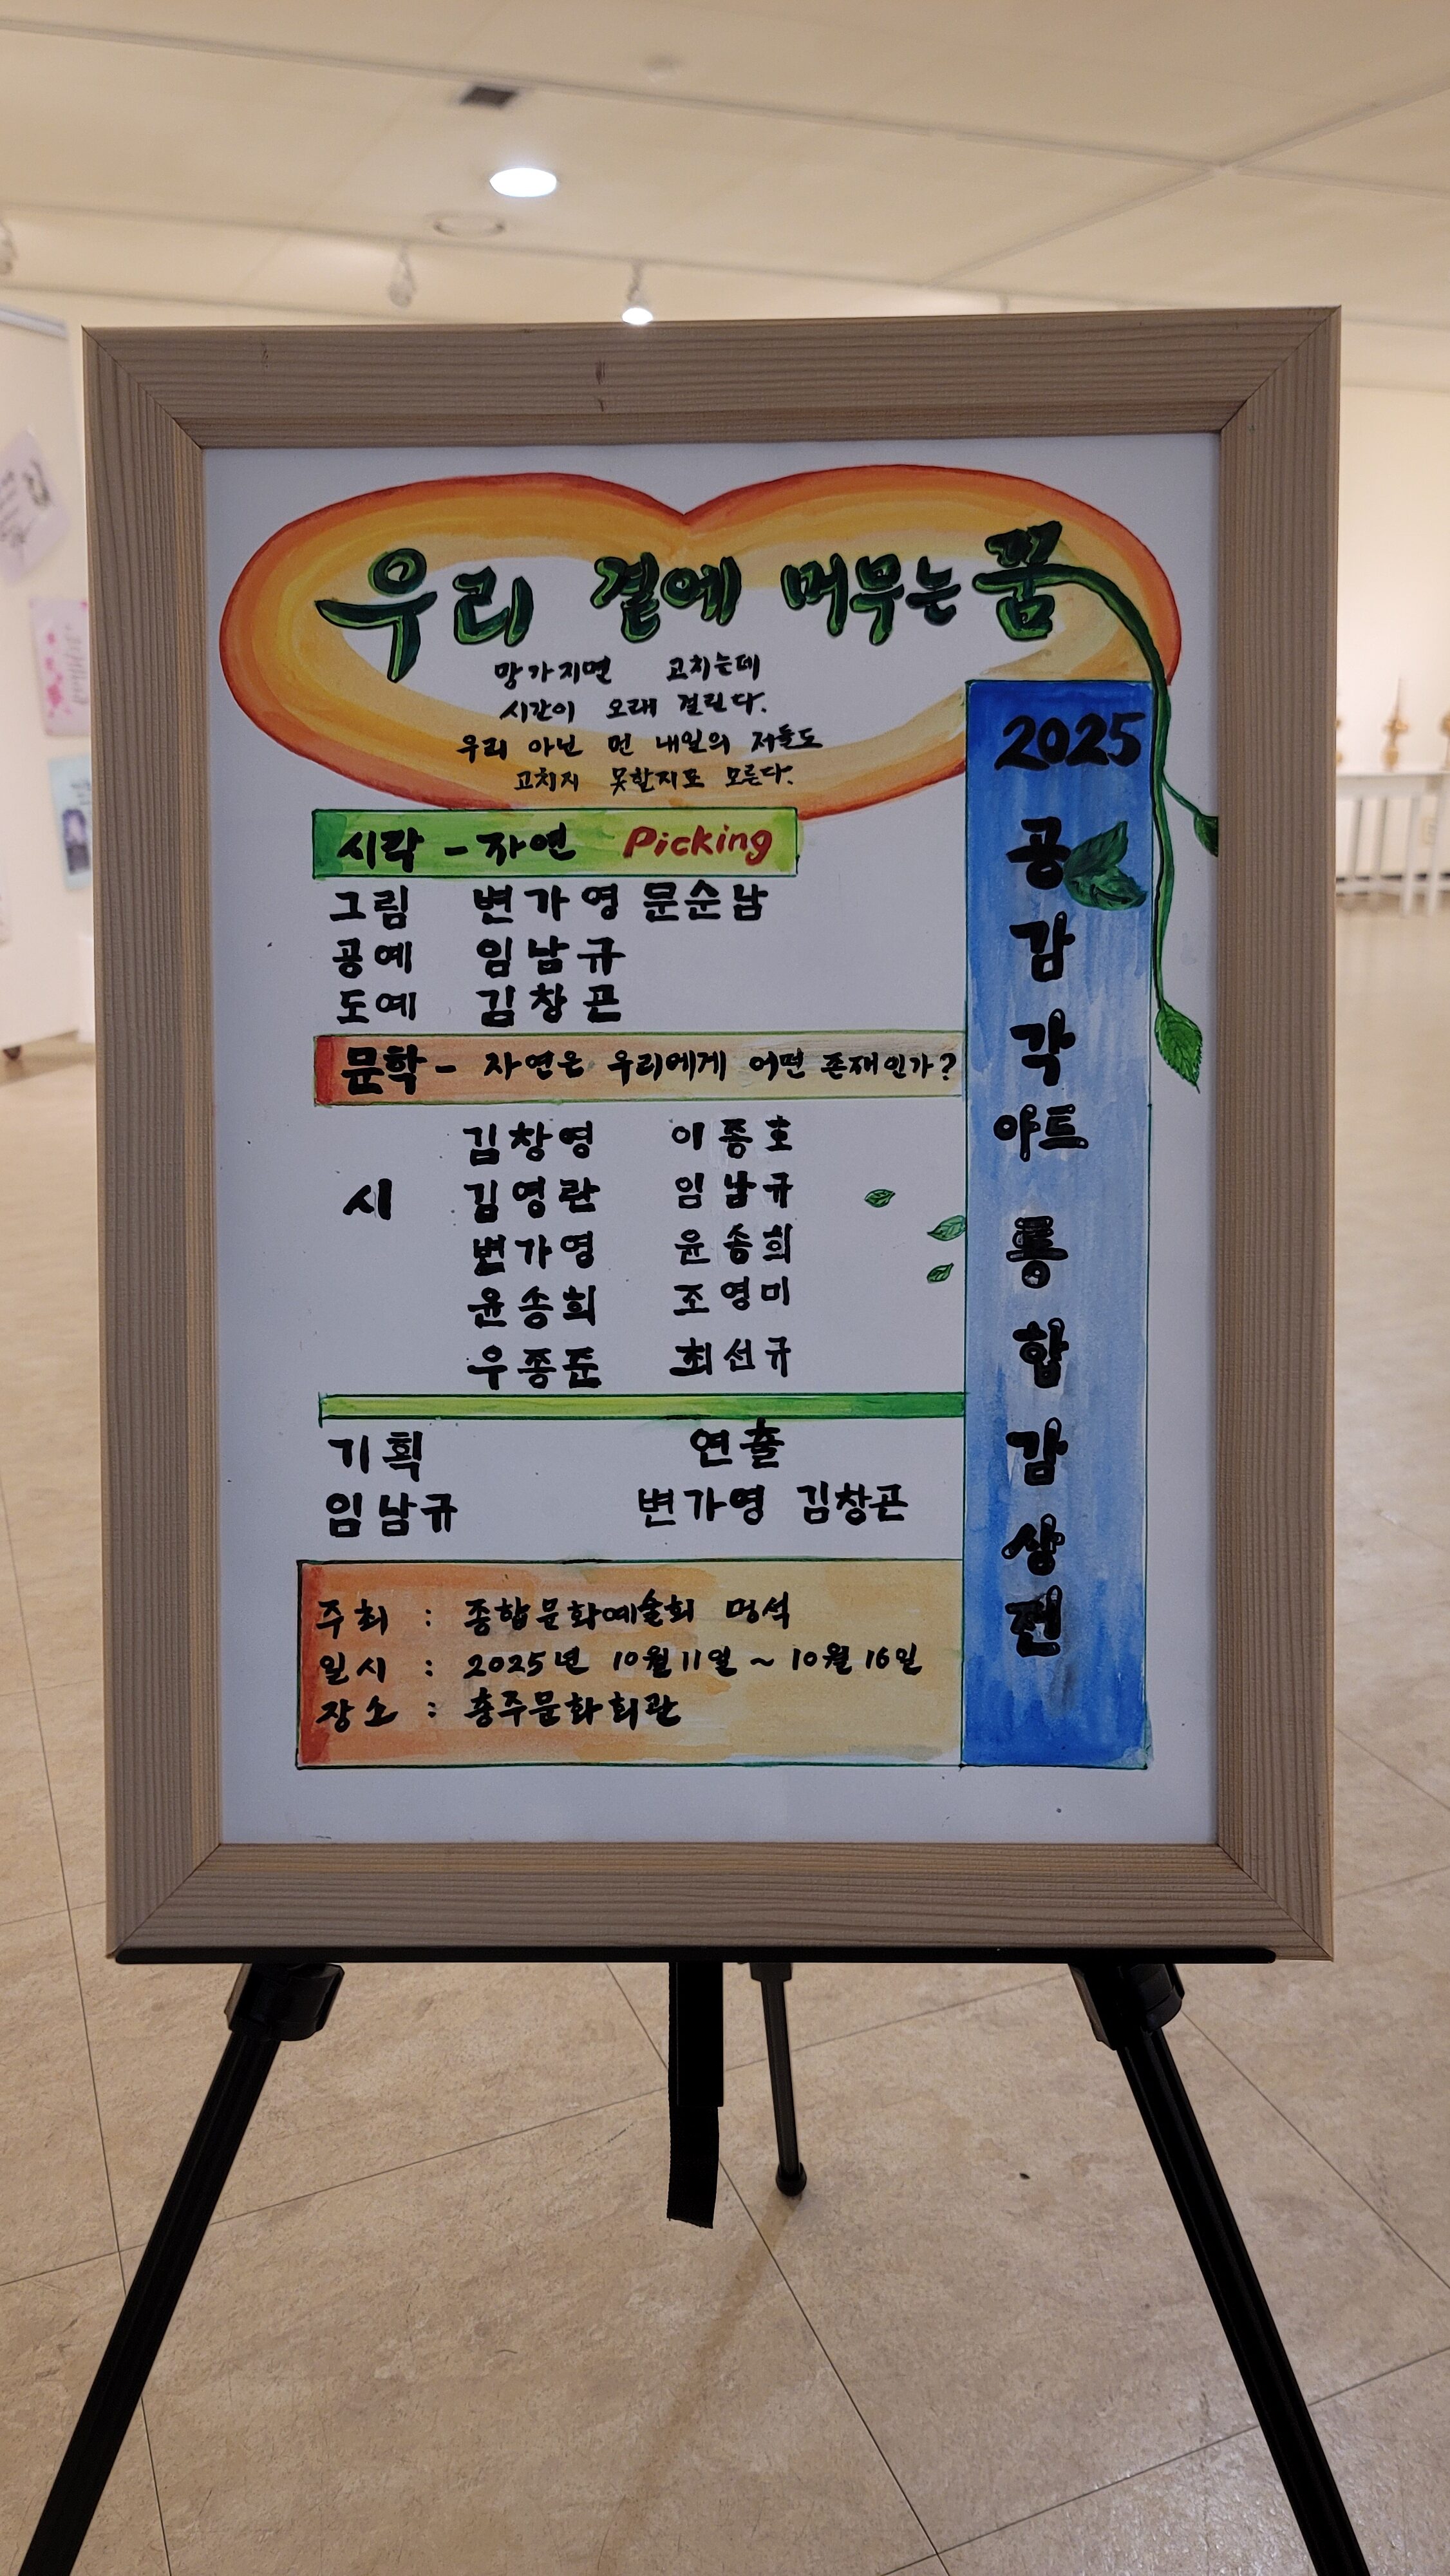 우리 곁에 머무는 꿈
망가지면 고치는데
시간이 오래 걸린다.
우리 아닌 먼 내일의 저들도
고치지 못할지도 모른다.
2025
공
감
각
아트
융
합
감
상
전
시각 - 자연 Picking
그림 변가영 문순남
공예 임남규
도예 김창곤
문학 - 자연은 우리에게 어떤 존재인가?
시
김창영 이종호
김영란 임남규
변가영 윤송희
윤송희 조영미
우종준 최선규
기획 연출
임남규 변가영 김창곤
주최 : 종합문화예술회 멍석
일시 : 2025년 10월 11일 ~ 10월 16일
장소 : 충주문화회관